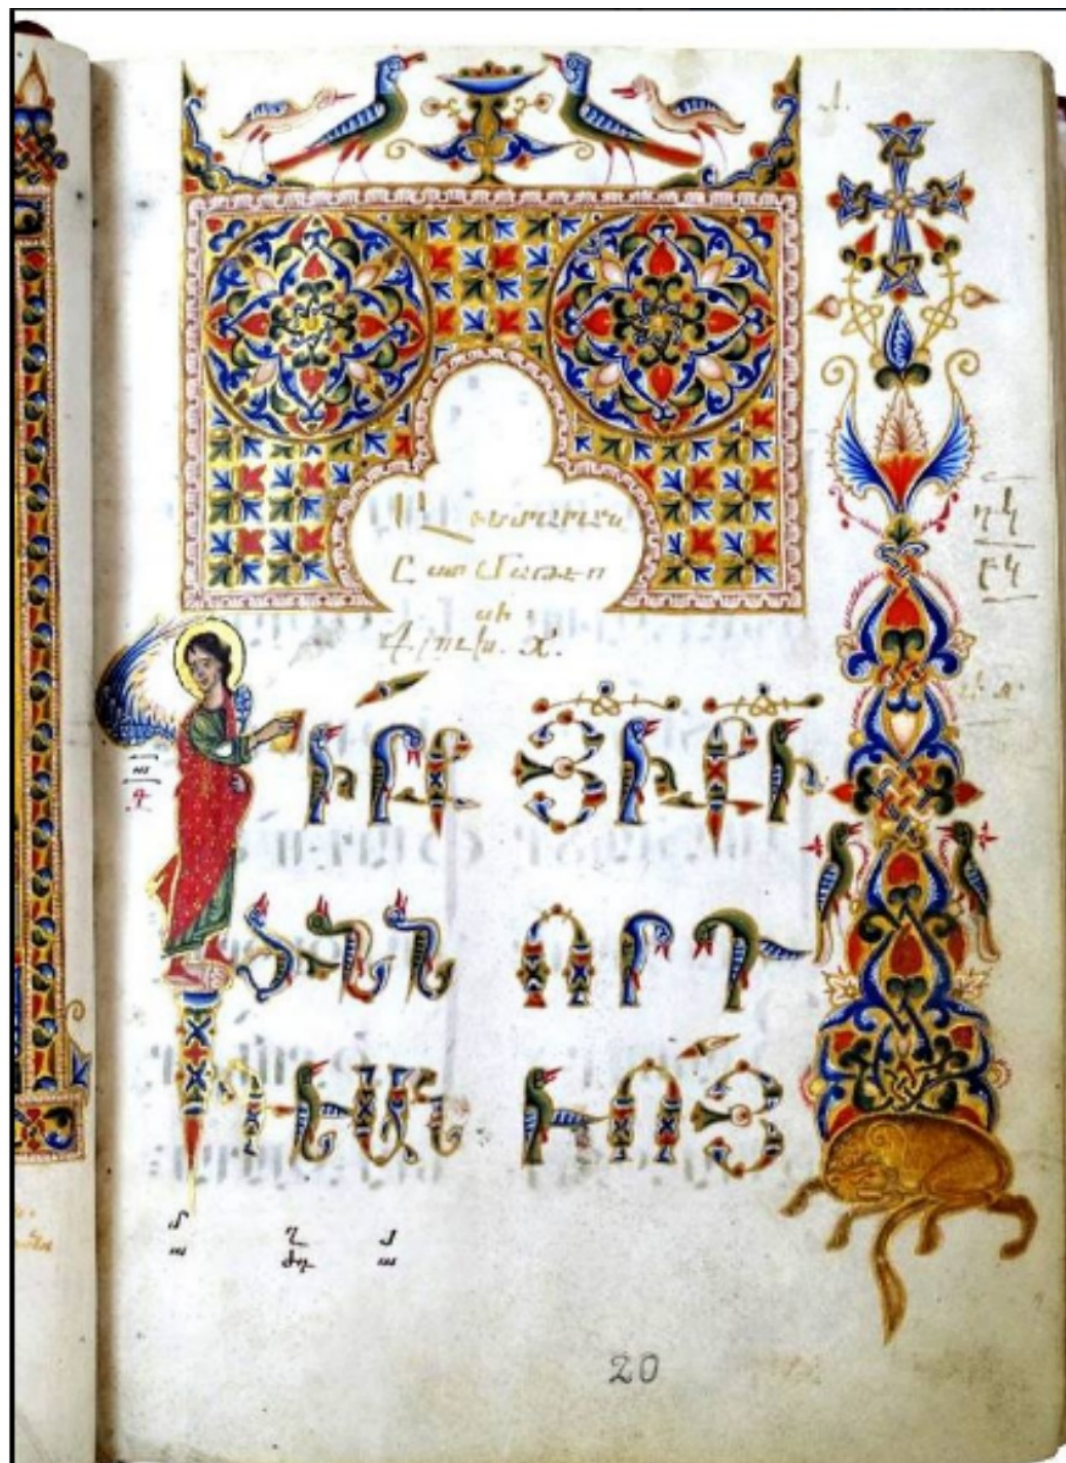 Աւետարան
Ըստ Մատթէո
սի
Գլուխ. Ա.
ԳԻՐՔ
ԾՆՆ
ԴԵԱՆ
ՅԻՔԻ
ՈՐԴ
ՒՈՅ
20